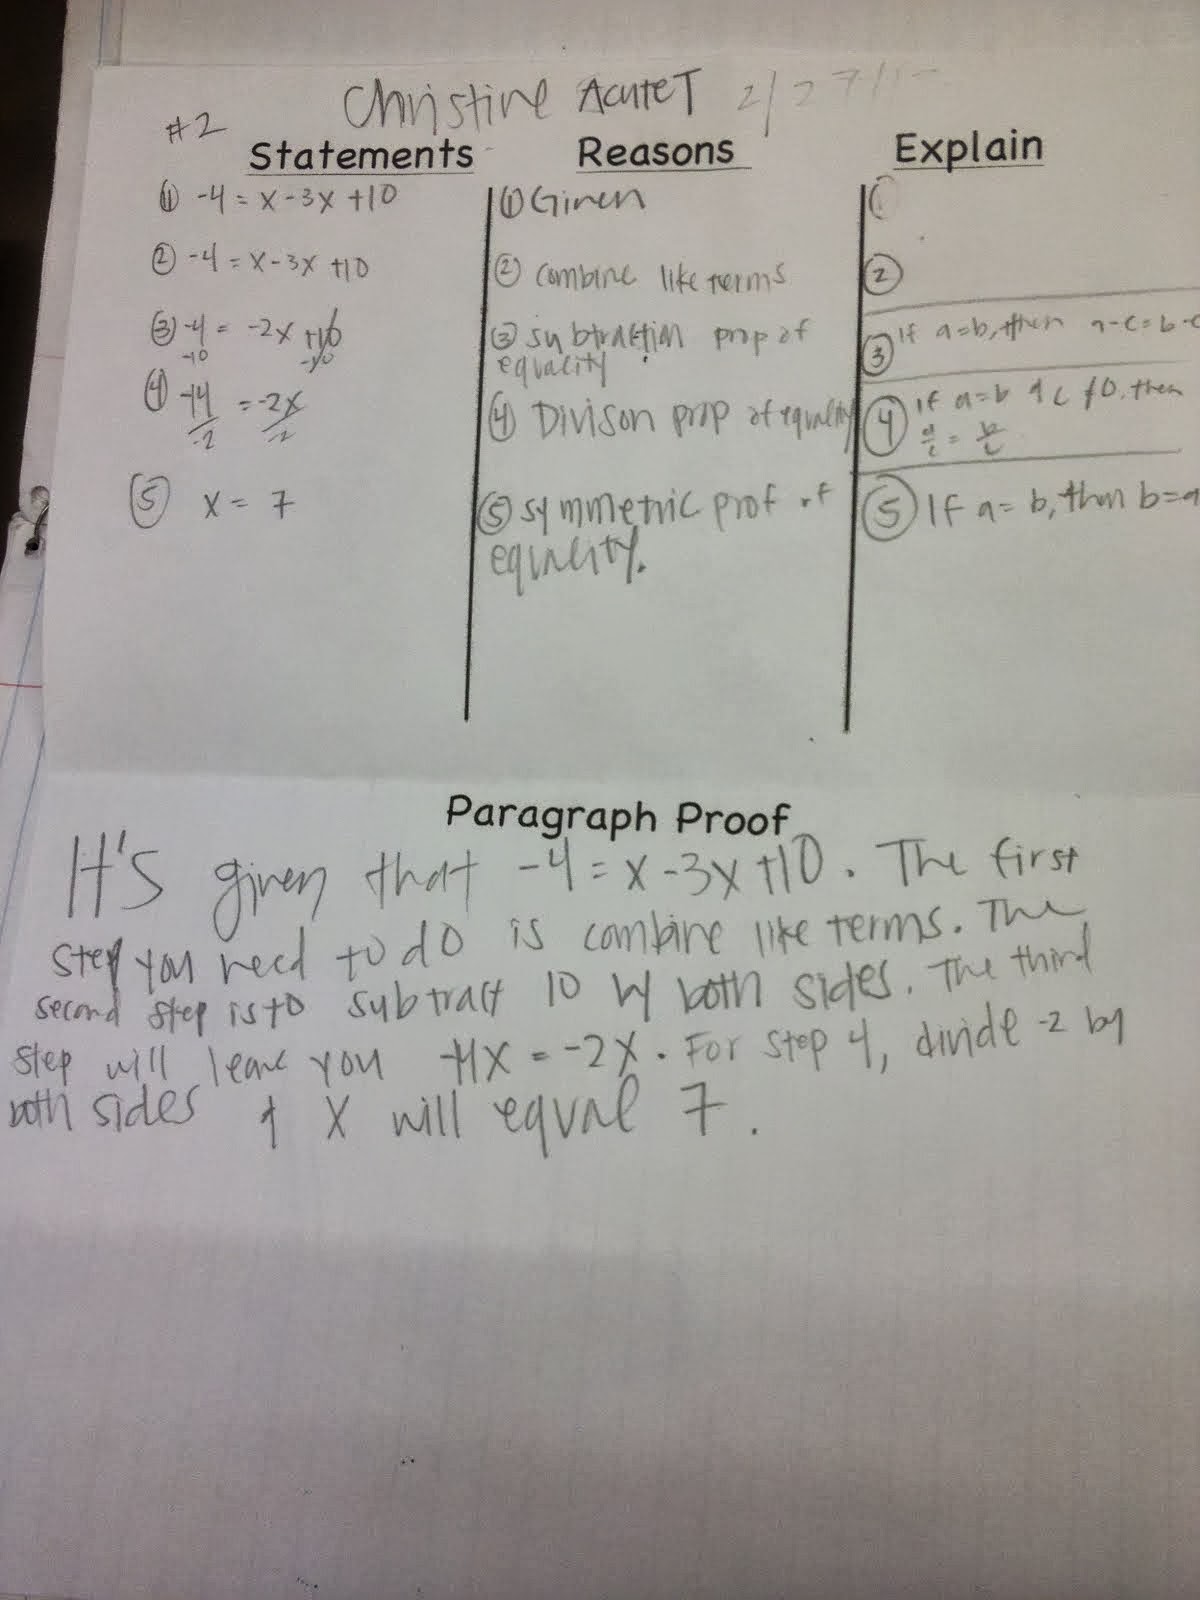 Christine AcuteT 2/27/1
#2
Statements Reasons Explain
① -4 = x - 3x + 10 ① Given ①
② -4 = x - 3x + 10 ② combine like terms ②
③ -4 = -2x + 10 ③ subtraction prop of ③ If a=b, then a-c=b-c
-10 -10 equality
④ -14 = -2x ④ Divison prop of equality ④ If a=b & c ≠ 0, then
-2 -2 a/c = b/c
⑤ x = 7 ⑤ symmetric prof of ⑤ If a= b, then b=a
equality.
Paragraph Proof
It's given that -4 = x - 3x + 10. The first
step you need to do is combine like terms. The
second step is to subtract 10 by both sides. The third
step will leave you -14x = -2x. For step 4, divide -2 by
both sides & x will equal 7.